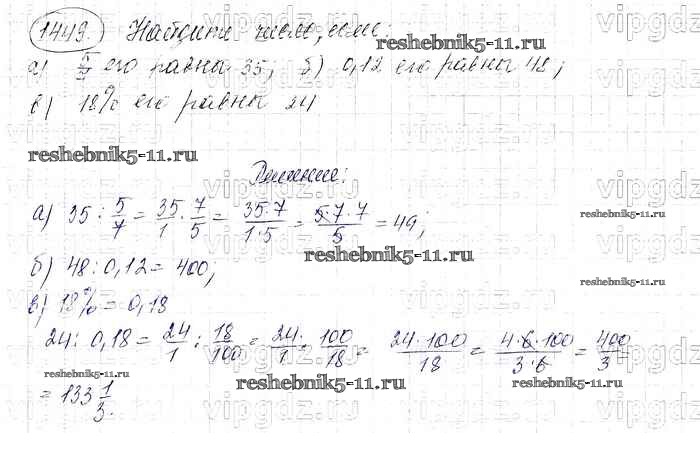 1449. Найдите число, если:
vipgdz.ru
reshebnik5-11.ru
а) 5/7 его равны 35; б) 0,12 его равны 48;
в) 18% его равны 24
reshebnik5-11.ru
Решение:
а) 35 : 5/7 = 35/1 · 7/5 = 35·7/1·5 = 5·7·7/5 = 49;
reshebnik5-11.ru
reshebnik5-11.ru
б) 48 : 0,12 = 400;
reshebnik5-11.ru
в) 18% = 0,18
24 : 0,18 = 24/1 : 18/100 = 24/1 · 100/18 = 24·100/18 = 4·6·100/3·6 = 400/3
reshebnik5-11.ru
reshebnik5-11.ru
reshebnik5-11.ru
= 133 1/3.